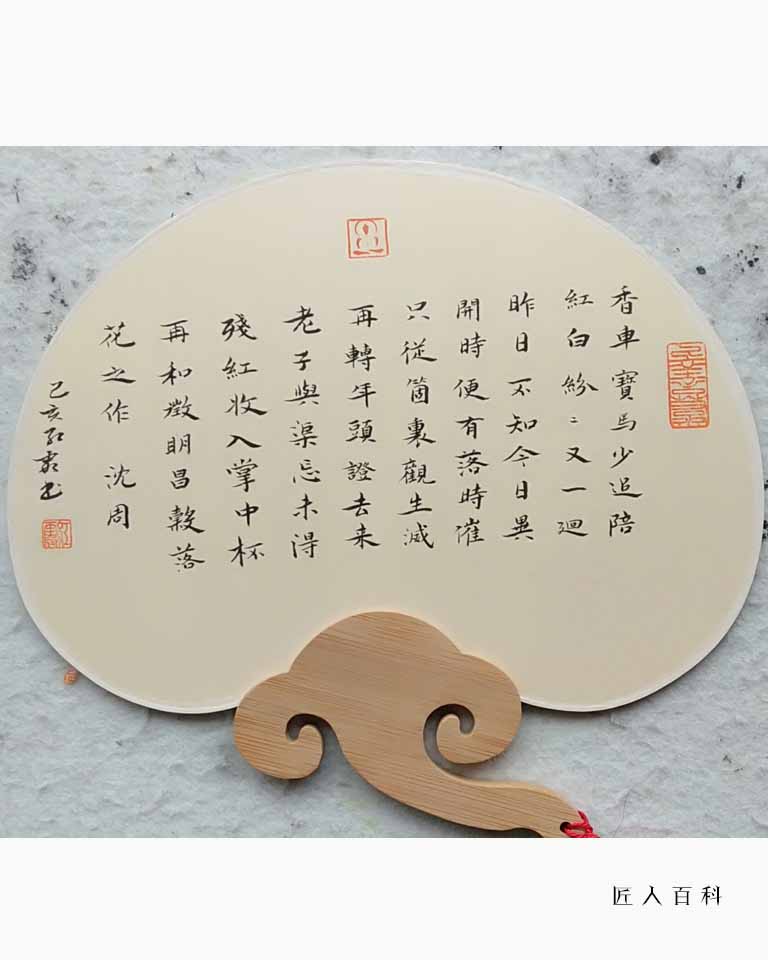 香車寶馬少追陪
紅白紛〻又一迴
昨日不知今日異
開時便有落時催
只從箇裏觀生滅
再轉年頭證去来
老子與渠忘未得
殘紅收入掌中杯
再和徵明昌穀落
花之作 沈周
己亥 書
匠人百科